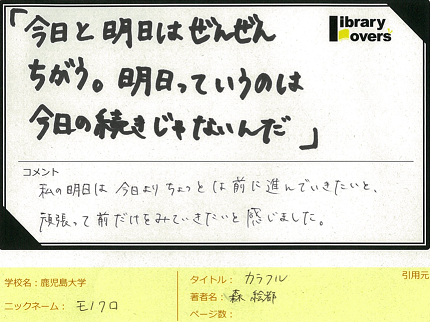 「今日と明日はぜんぜん
ちがう。明日っていうのは
今日の続きじゃないんだ」
Library
Lovers'
コメント
私の明日は今日よりちょっとは前に進んでいきたいと、
頑張って前だけをみていきたいと感じました。
学校名:鹿児島大学
ニックネーム:モノクロ
タイトル:カラフル
著者名:森 絵都
ページ数:
引用元